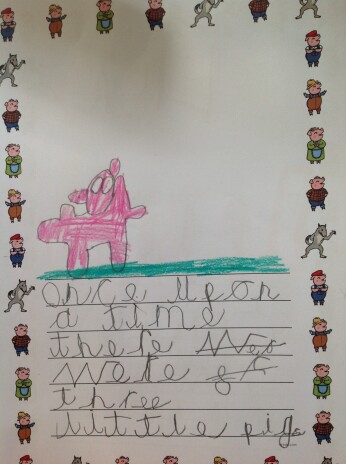 once upon
a time
there
were
three
little pigs